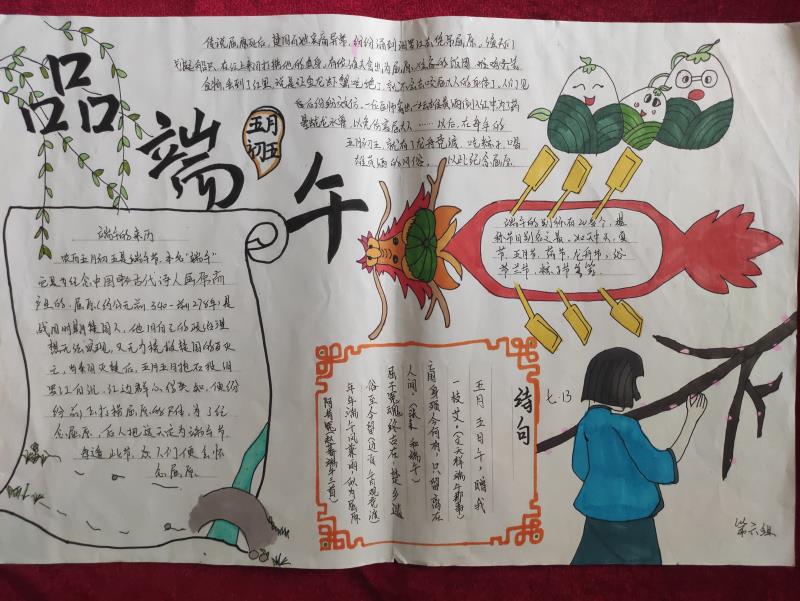 品
端
午
五月
初五
传说屈原死后，楚国百姓哀痛异常，纷纷涌到汨罗江去凭吊屈原。渔夫们
划起船只，在江上来回打捞他的真身。有位渔夫拿出为屈原准备的饭团、鸡蛋等
食物，丢到了江里，说是让鱼龙虾蟹吃饱了，就不会去咬屈大人的身体了。人们见
后纷纷效仿。一位老医师拿出一坛雄黄酒倒入江中为了药
晕蛟龙水兽，以免伤害屈大人……以后，在每年的
五月初五，就有了龙舟竞渡、吃粽子、喝
雄黄酒的风俗，以此纪念屈原
端午的来历
农历五月初五是端午节，
它是为纪念中国古代诗人屈原而
产生的。屈原（约公元前340-前278年）是
战国时期楚国人，他因自己的政治理
想无法实现，又无力挽救楚国的
亡，当秦国灭楚后，五月五日抱石投汨
罗江自沉，江边群众得知，便纷
纷打捞屈原的尸体，为了纪
念屈原，后人把这天定为端午节
每逢此节，人们便会怀
念屈原。
端午的别称有20多个，堪
称节日别名之最。如天中、夏
节、五月节、菖节、龙舟节、浴
兰节、粽子节等等。
诗句
五月五日午，赠我
一枝艾。（文天祥 端午即事）
国亡身殒今何有，只留离骚在
人间。（张耒 和端午）
屈子冤魂终古在，楚乡遗
俗至今留（边贡 午日观竞渡）
年年端午风兼雨，似为屈原
陈昔冤（赵蕃 端午三首）
七.13
第六组